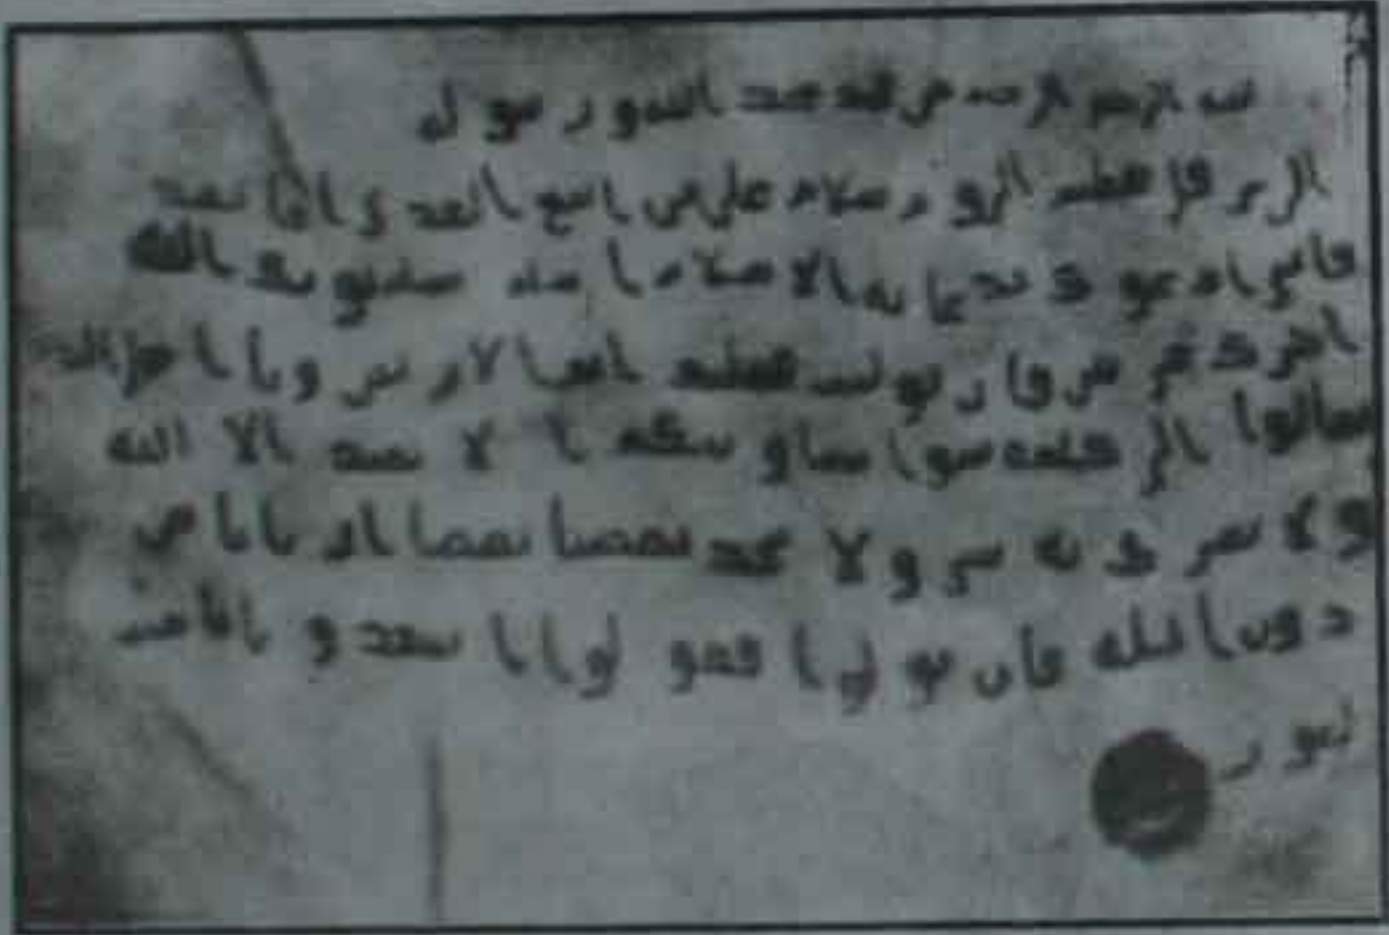 الرحمن الرحيم من محمد عبد الله و رسوله
الى هرقل عظيم الروم سلام على من اتبع الهدى اما بعد
فانى ادعوك بدعاية الاسلام اسلم تسلم يوتك الله
اجرك مرتين فان توليت فعليك اثم الاريسين ويا اهل الكتاب
تعالوا الى كلمة سوا بيننا و بينكم ا لا نعبد الا الله
ولا نشرك به شى و لا يتخذ بعضنا بعضا اربابا من
دون الله فان تولوا فقولوا اشهدوا بانا